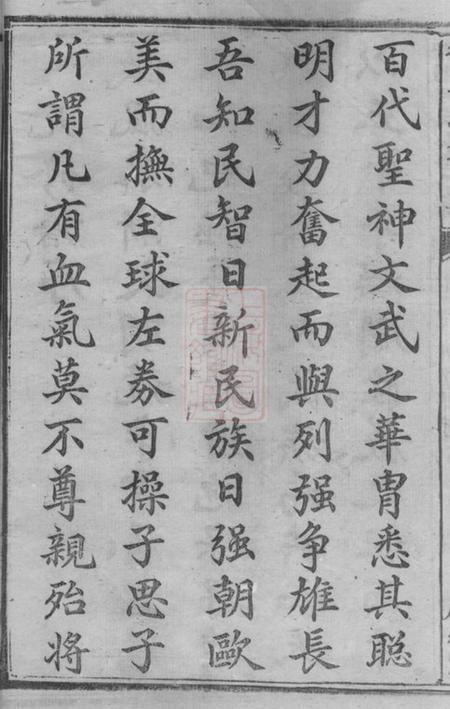 百代聖神文武之華胄悉其聡
明才力奮起而與列强争雄長
吾知民智日新民族日强朝歐
美而撫全球左券可操子思子
所謂凡有血氣莫不尊親殆將